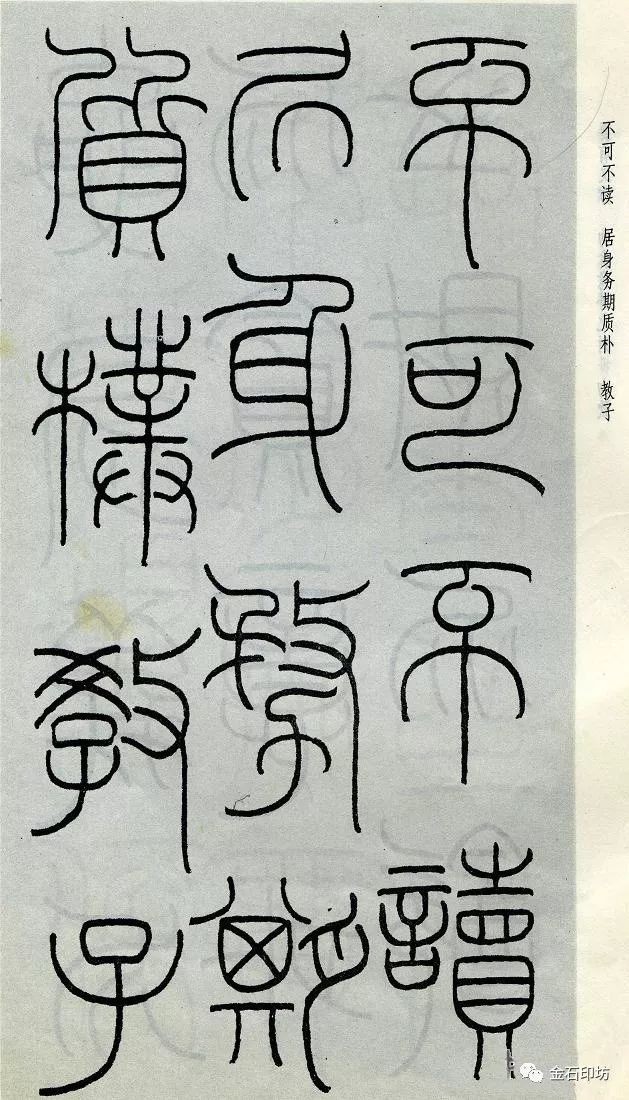 不可不读 居身务期质朴 教子
不可不讀
居身務期
質樸教子
金石印坊